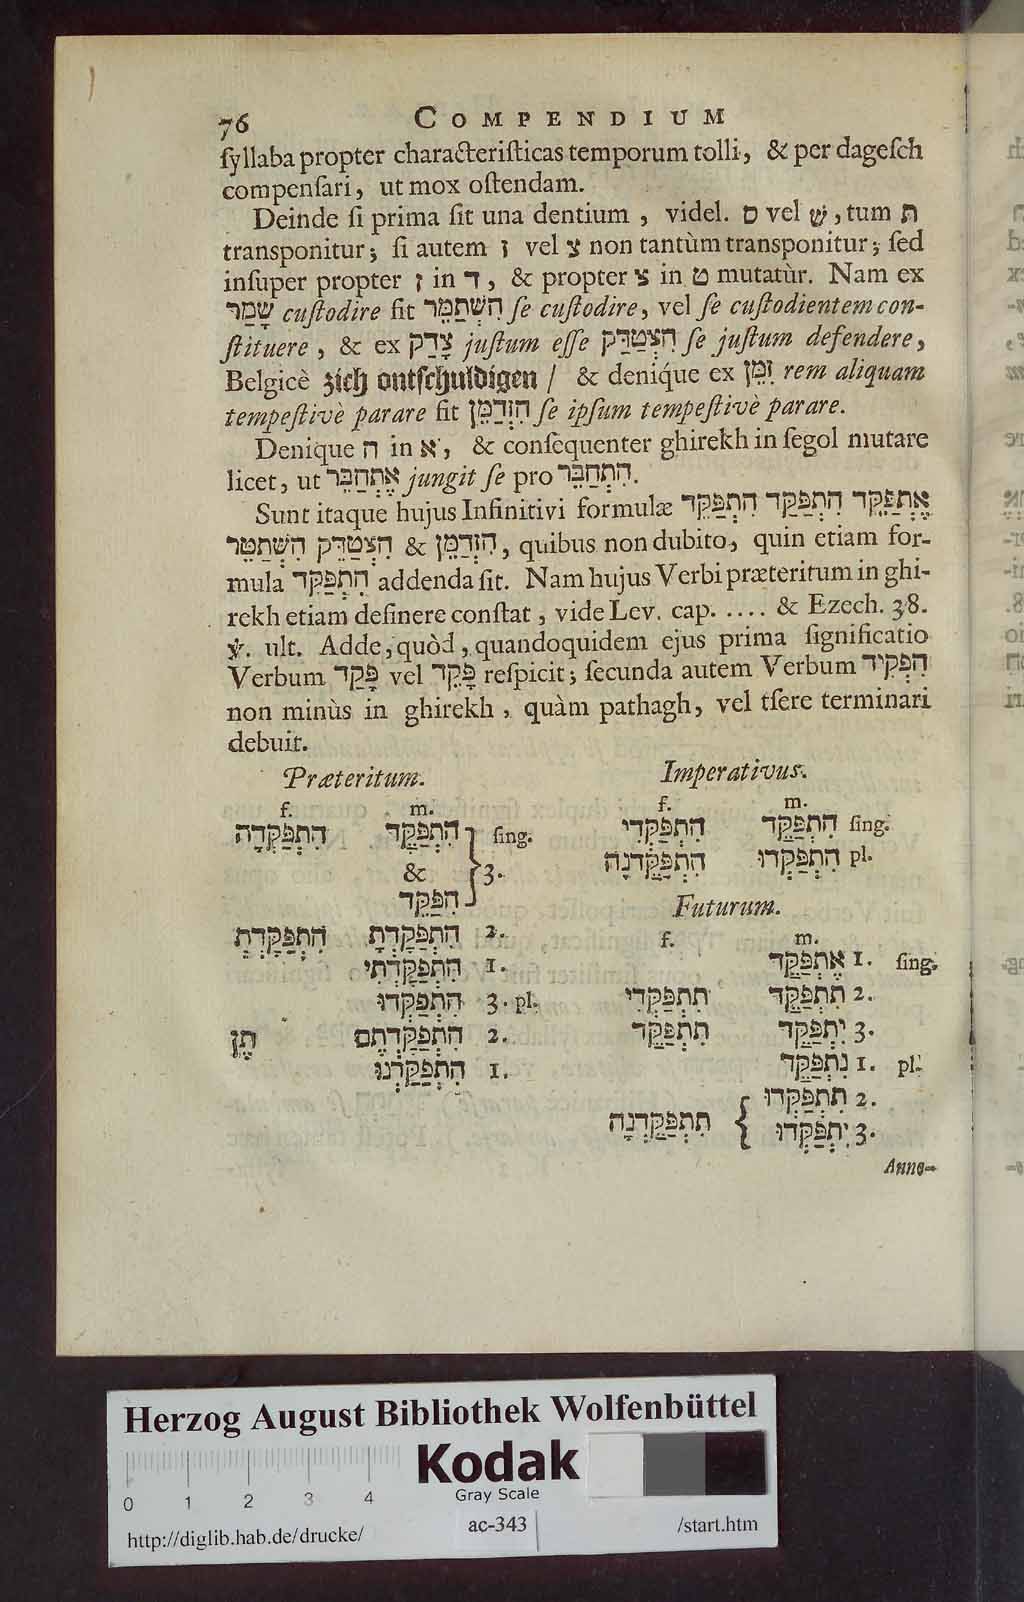 76 COMPENDIUM
ſyllaba propter characteriſticas temporum tolli, & per dageſch
compenſari, ut mox oſtendam.
Deinde ſi prima ſit una dentium, videl. ס vel שׁ, tum ת
transponitur; ſi autem ז vel צ non tantùm transponitur; ſed
inſuper propter ז in ד, & propter צ in ט mutatùr. Nam ex
שָׁמַר cuſtodire fit הִשְׁתַּמֵּר ſe cuſtodire, vel ſe cuſtodientem con-
ſtituere, & ex צָדַק juſtum eſſe הִצְטַדֵּק ſe juſtum defendere,
Belgicè zich ontſchuldigen / & denique ex זִמֵּן rem aliquam
tempeſtivè parare fit הִזְדַּמֵּן ſe ipſum tempeſtivè parare.
Denique ה in א, & conſequenter ghirekh in ſegol mutare
licet, ut אֶתְחַבֵּר jungit ſe pro הִתְחַבֵּר.
Sunt itaque hujus Infinitivi formulæ הִתְפַּקֵּד הִתְפַּקַּד אֶתְפַּקֵּד
הִשְׁתַּמֵּר הִצְטַדֵּק & הִזְדַּמֵּן, quibus non dubito, quin etiam for-
mula הִתְפַּקִּד addenda ſit. Nam hujus Verbi præteritum in ghi-
rekh etiam deſinere conſtat, vide Lev. cap. ..... & Ezech. 38.
℣. ult. Adde, quòd, quandoquidem ejus prima ſignificatio
Verbum פָּקַד vel פִּקֵּד reſpicit; ſecunda autem Verbum הִפְקִיד
non minùs in ghirekh, quàm pathagh, vel tſere terminari
debuit.
Præteritum.
f. m.
הִתְפַּקְּדָה הִתְפַּקֵּד ſing.
& 3.
הִפַּקֵּד
הִתְפַּקַּדְתְּ הִתְפַּקַּדְתָּ 2.
הִתְפַּקַּדְתִּי 1.
הִתְפַּקְּדוּ 3. pl.
תֶּן הִתְפַּקַּדְתֶּם 2.
הִתְפַּקַּדְנוּ 1.
Imperativus.
f. m.
הִתְפַּקְּדִי הִתְפַּקֵּד ſing.
הִתְפַּקֵּדְנָה הִתְפַּקְּדוּ pl.
Futurum.
f. m.
אֶתְפַּקֵּד 1. ſing.
תִּתְפַּקְּדִי תִּתְפַּקֵּד 2.
תִּתְפַּקֵּד יִתְפַּקֵּד 3.
נִתְפַּקֵּד 1. pl.
תִּתְפַּקְּדוּ 2.
תִּתְפַּקֵּדְנָה
יִתְפַּקְּדוּ 3.
Anno-
Herzog August Bibliothek Wolfenbüttel
Kodak
Gray Scale
0 1 2 3 4
http://diglib.hab.de/drucke/ ac-343 /start.htm